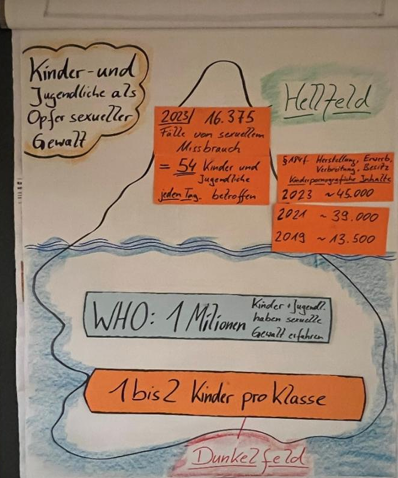 Kinder- und
Jugendliche als
Opfer sexueller
Gewalt
Hellfeld
2023/ 16.375
Fälle von sexuellem
Missbrauch
= 54 Kinder und
Jugendliche
jeden Tag betroffen
§184f Herstellung, Erwerb,
Verbreitung, Besitz
Kinderpornografische Inhalte
2023 ~45.000
2021 ~ 39.000
2019 ~ 13.500
WHO: 1 Milionen
Kinder + Jugendl.
haben sexuelle
Gewalt erfahren
1 bis 2 Kinder pro Klasse
Dunkelfeld